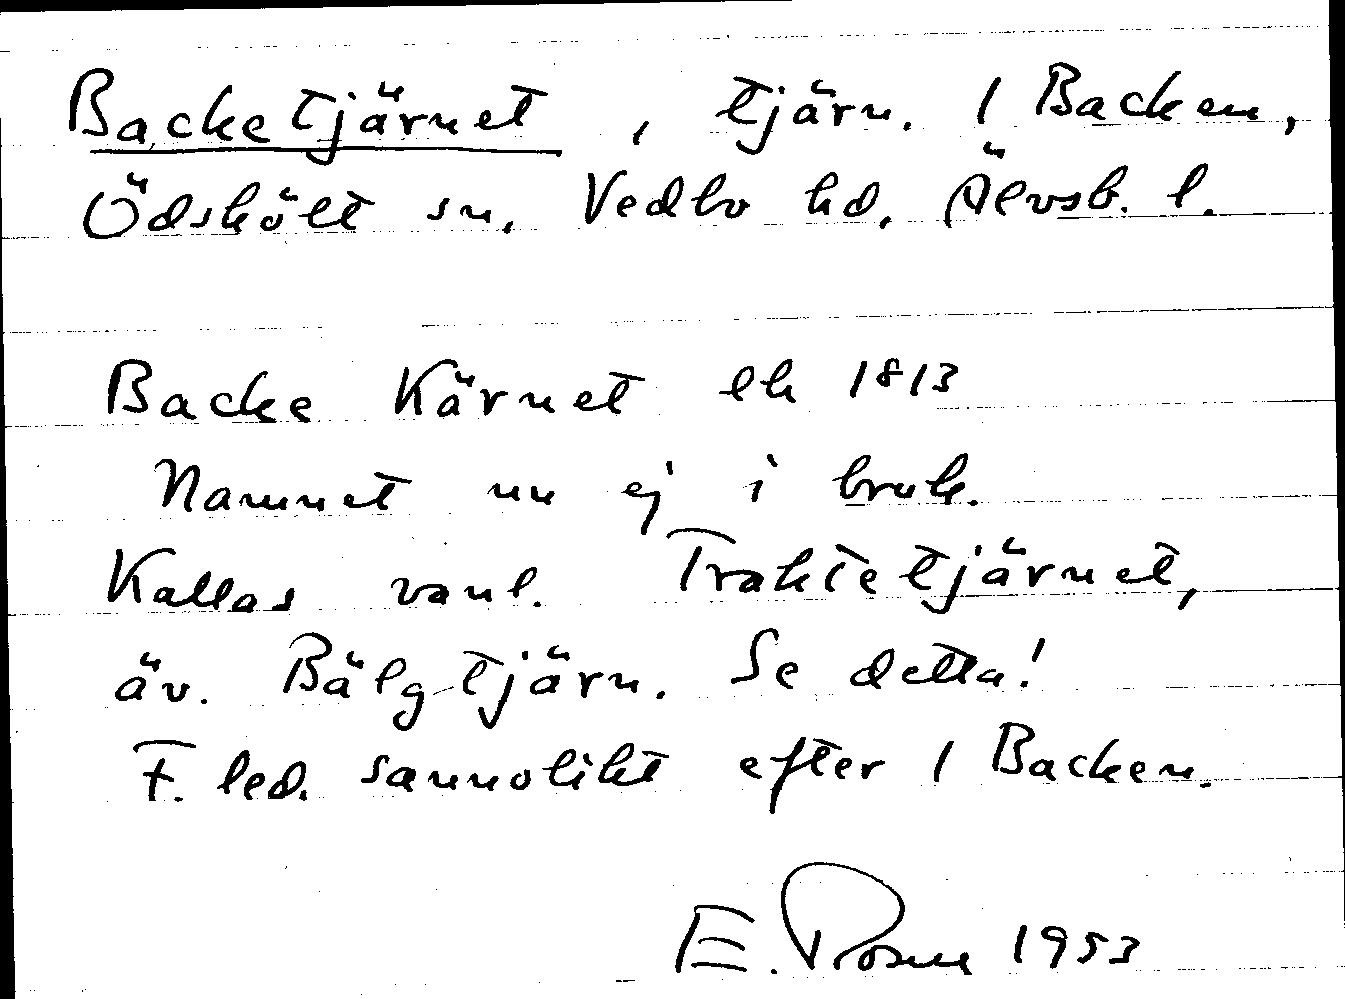 Backetjärnet, tjärn. 1 Backen,
Ödskölt sn, Vedbo hd, Älvsb. l.
Backe Kärnet ek 1813
Namnet nu ej i bruk.
Kallas vanl. Traktetjärnet,
äv. Bälg-tjärn. Se detta!
F. led. sannolikt efter 1 Backen.
E. Rosne 1953